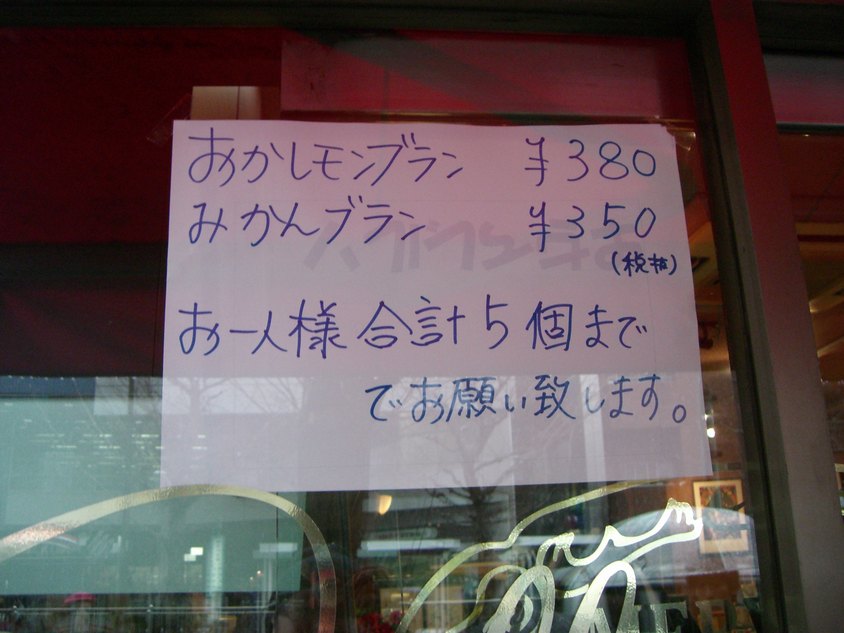 おかしモンブラン ¥380
みかんブラン ¥350
(税抜)
お一人様 合計5個まで
でお願い致します。